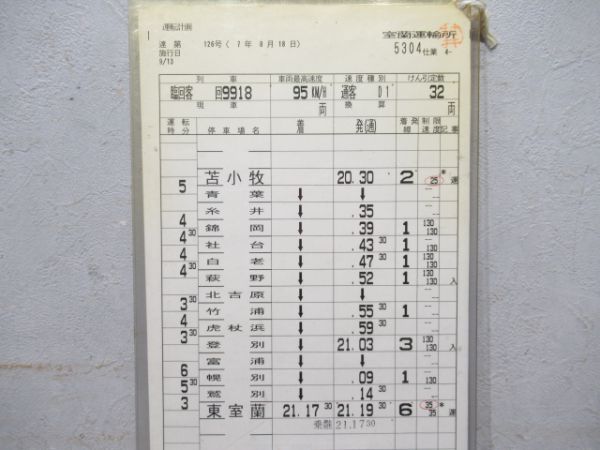 運転計画
室蘭運輸所
達第 126号 ( 7年 8月18日)
5304仕業 4-
施行日
9/13
列車 車両最高速度 速度種別 けん引定数
臨回客 回9918 95KM/H 通客 D1 32
現車 両 換算 両
運転時分 停車場名 着 発(通) 着発線 制限速度 記事
苫小牧 20.30 2 25 * 運
5
青葉 ↓ ↓
糸井 ↓ .35
4
錦岡 ↓ .39 1 130 130
4 30
社台 ↓ .43 30 130 130
4
白老 ↓ .47 30 1 130 130
4 30
萩野 ↓ .52 1 130 130 入
北吉原 ↓ ↓
3 30
竹浦 ↓ .55 30 1
4
虎杖浜 ↓ .59 30
3 30
登別 ↓ 21.03 3 130 130 入
富浦 ↓ ↓
6
幌別 ↓ .09 1 130 130
5 30
鷲別 ↓ .14 30
3
東室蘭 21.17 30 21.19 30 6 35 35 * 運
乗継 21.17 30